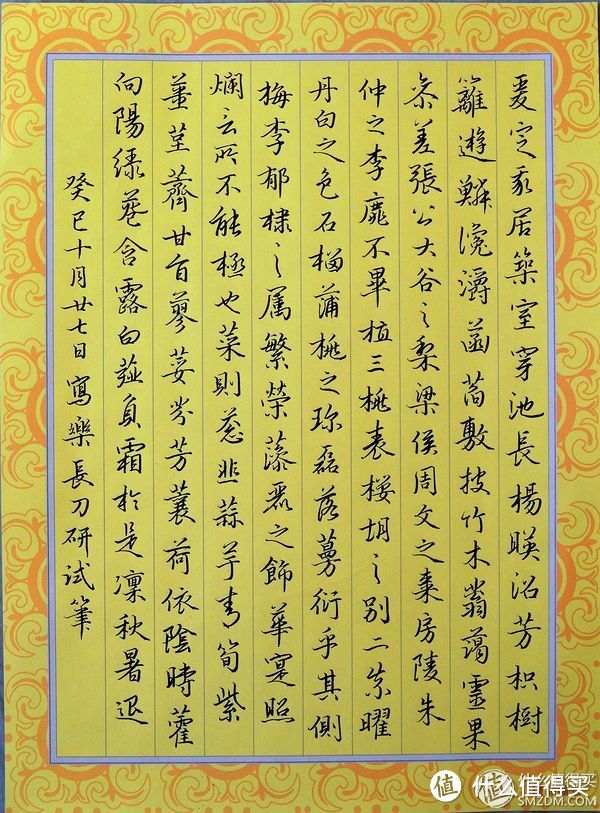 爰定我居築室穿池長楊暎沼芳枳樹
籬遊鱗瀺灂菡萏敷披竹木蓊藹靈果
叅差張公大谷之梨梁侯周文之棗房陵朱
仲之李靡不畢植三桃表櫻胡之別二柰曜
丹白之色石榴蒲桃之珍磊落蔓衍乎其側
梅李郁棣之属繁榮藻麗之飾華寔照
爛言所不能極也菜則葱韭蒜芋青筍紫
薑堇薺甘旨蓼荽芬芳蘘荷依陰時藿
向陽綠葵含露白薤負霜於是凜秋暑退
癸巳十月廿七日寫樂長刀研試筆
值 什么值得买
值 什么值得买
SMZDM.COM